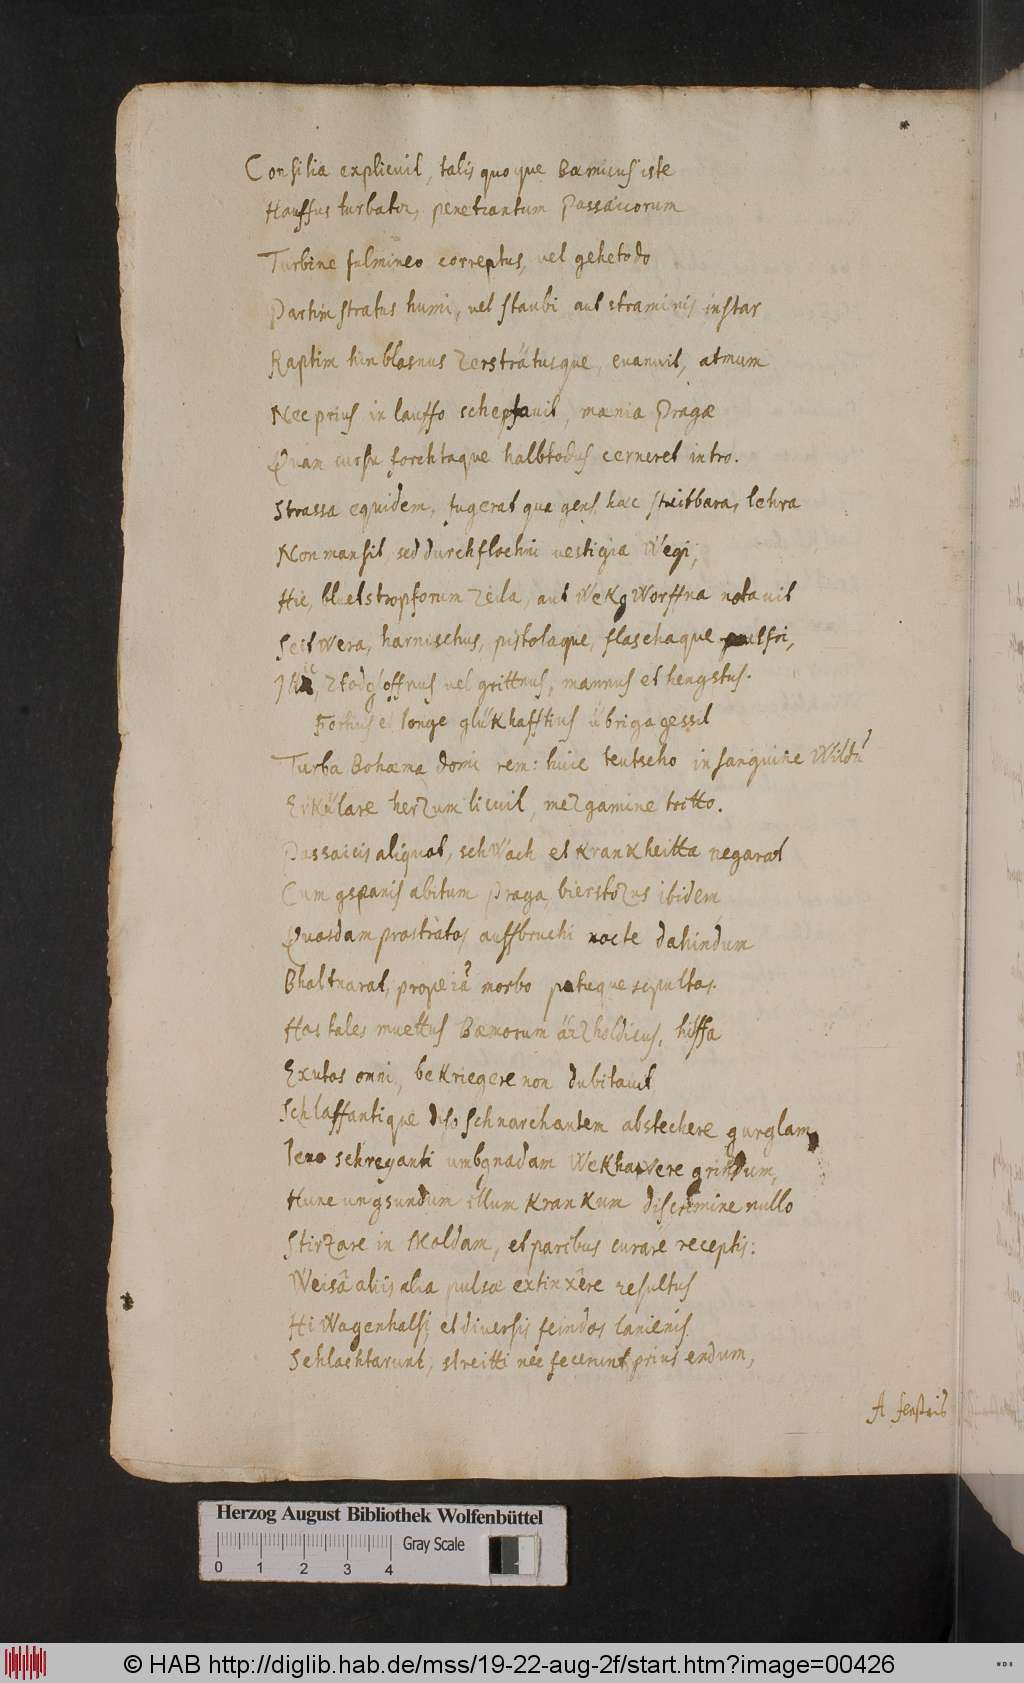 Consilia explicuit, talis quoque Bœmicus iste
Hauffus turbator, penetrantum Passaicorum
Turbine fulmineo correptus, vel gehetodo
Partim stratus humi, vel staubi aut straminis instar
Raptim hinblasnus zersträtusque, evanuit, atmum
Nec prius in lauffo schepfavit, mænia Pragæ
Quam cursu forchtaque halbtodus cerneret intro.
Strassa equidem, fugerat qua gens hæc streitbara, lehra
Non mansit, sed durchflochni vestigia Wegi,
Hic, bluetstropforum zeila, aut WekgWorffna notavit
Seitwera, harnischus, pistolaque, flaschaque pulfri,
Illic, ztodgloffnus vel grittnus, mannus et hengstus.
Fortius et longe glükhafftius übriga gessit
Turba Bohœma domi rem: huic teutscho in sanguine
Erkülare herzum licuit, mezgamine tritto.
Passaicis aliquot, schWach et Krankheitta negarat
Cum gspanis abitum Praga, bierstozus ibidem
Quosdam prostratos auffbruchi nocte dahindum
Bhaltnarat, morbo potuque sepultos.
Hos tales muettus Bœmorum ärzholdicus, hiffa
Exutos omni, beKriegere non dubitavit
Schlaffantique diso Schnarchantem abstechere gurglam,
Ieno schreyanti umbgnadam Wekhawere grindum,
Hunc ungsundum illum KranKum discrimine nullo
Stirzare in Moldam, et paribus curare receptis:
Weisa aliis alia pulsæ extinxere resultus
Hi Wagenhalsi, et diversis feindos laniœnis
Schlachtarunt, streitti nec fecerunt prius endum,
A fenstris
Herzog August Bibliothek Wolfenbüttel
Gray Scale
0 1 2 3 4
© HAB http://diglib.hab.de/mss/19-22-aug-2f/start.htm?image=00426